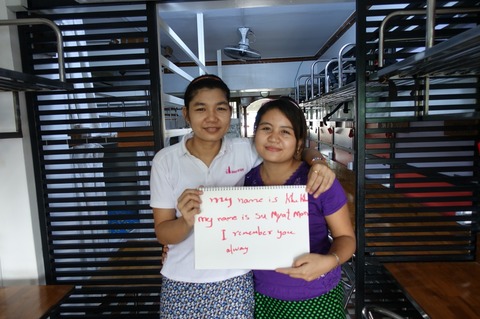 my name is Khi Khi
my name is Su Myat Mon
I remember you
alway